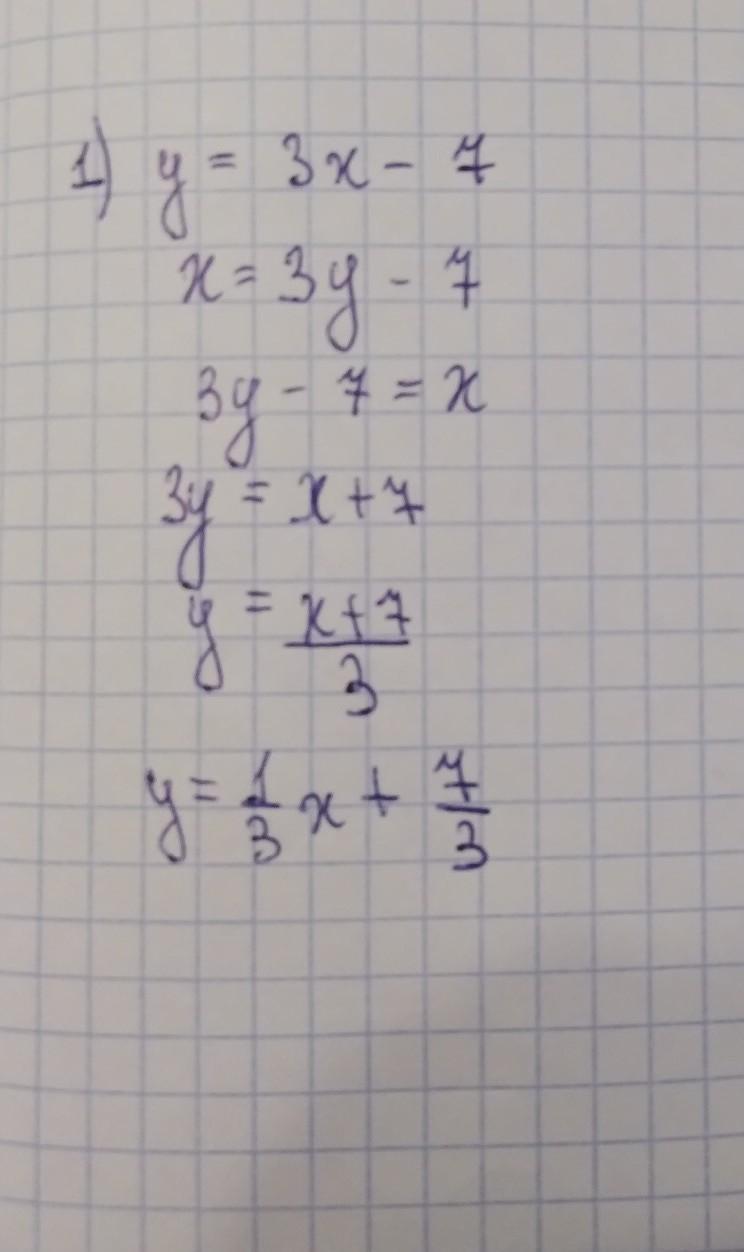 1) y = 3x - 7
x = 3y - 7
3y - 7 = x
3y = x + 7
y = \frac{x+7}{3}
y = \frac{1}{3}x + \frac{7}{3}